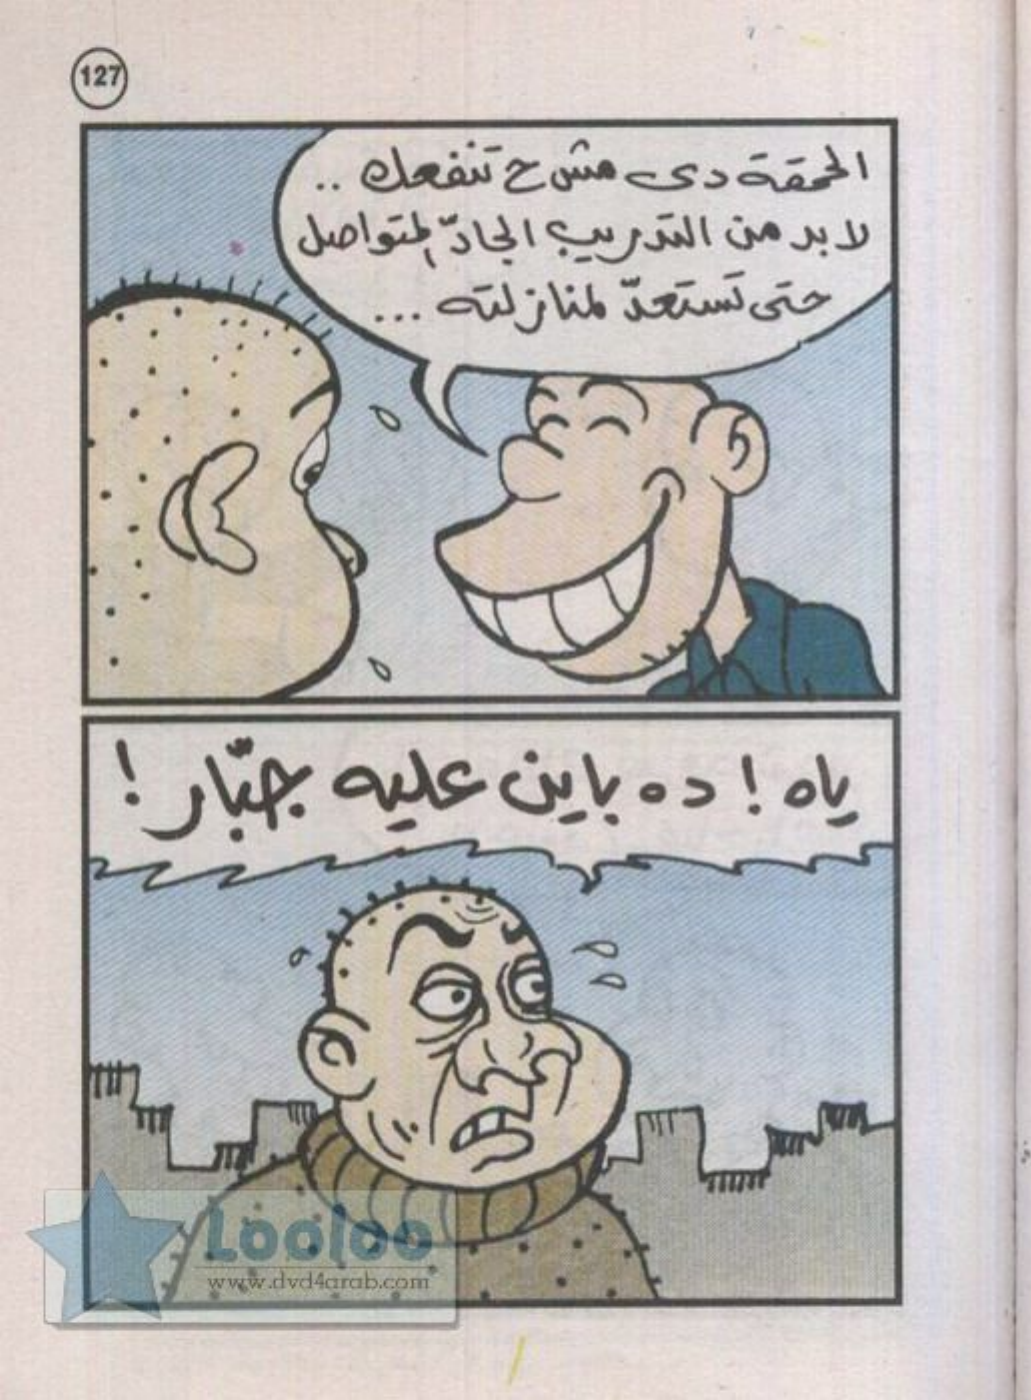 127
الحمقة دى مش ح تنفعك ..
لا بد من التدريب الجادّ المتواصل
حتى تستعدّ لمنازلته ...
ياه ! ده باين عليه جبّار !
Looloo
www.dvd4arab.com